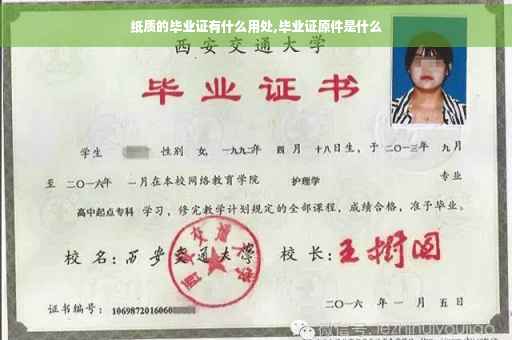 纸质的毕业证有什么用处,毕业证原件是什么
西安交通大学
毕业证书
学生 性别 女，一九九二年 四月 十八日生，于 二〇一三年 九月
至 二〇一六年 一月在本校网络教育学院 护理学 专业
高中起点专科 学习，修完教学计划规定的全部课程，成绩合格，准予毕业。
校 名：西安交通大学 校 长：王树国
证书编号：1069872016060
二〇一六 年 一 月 五 日
微信号: jezhinuiyoujiao